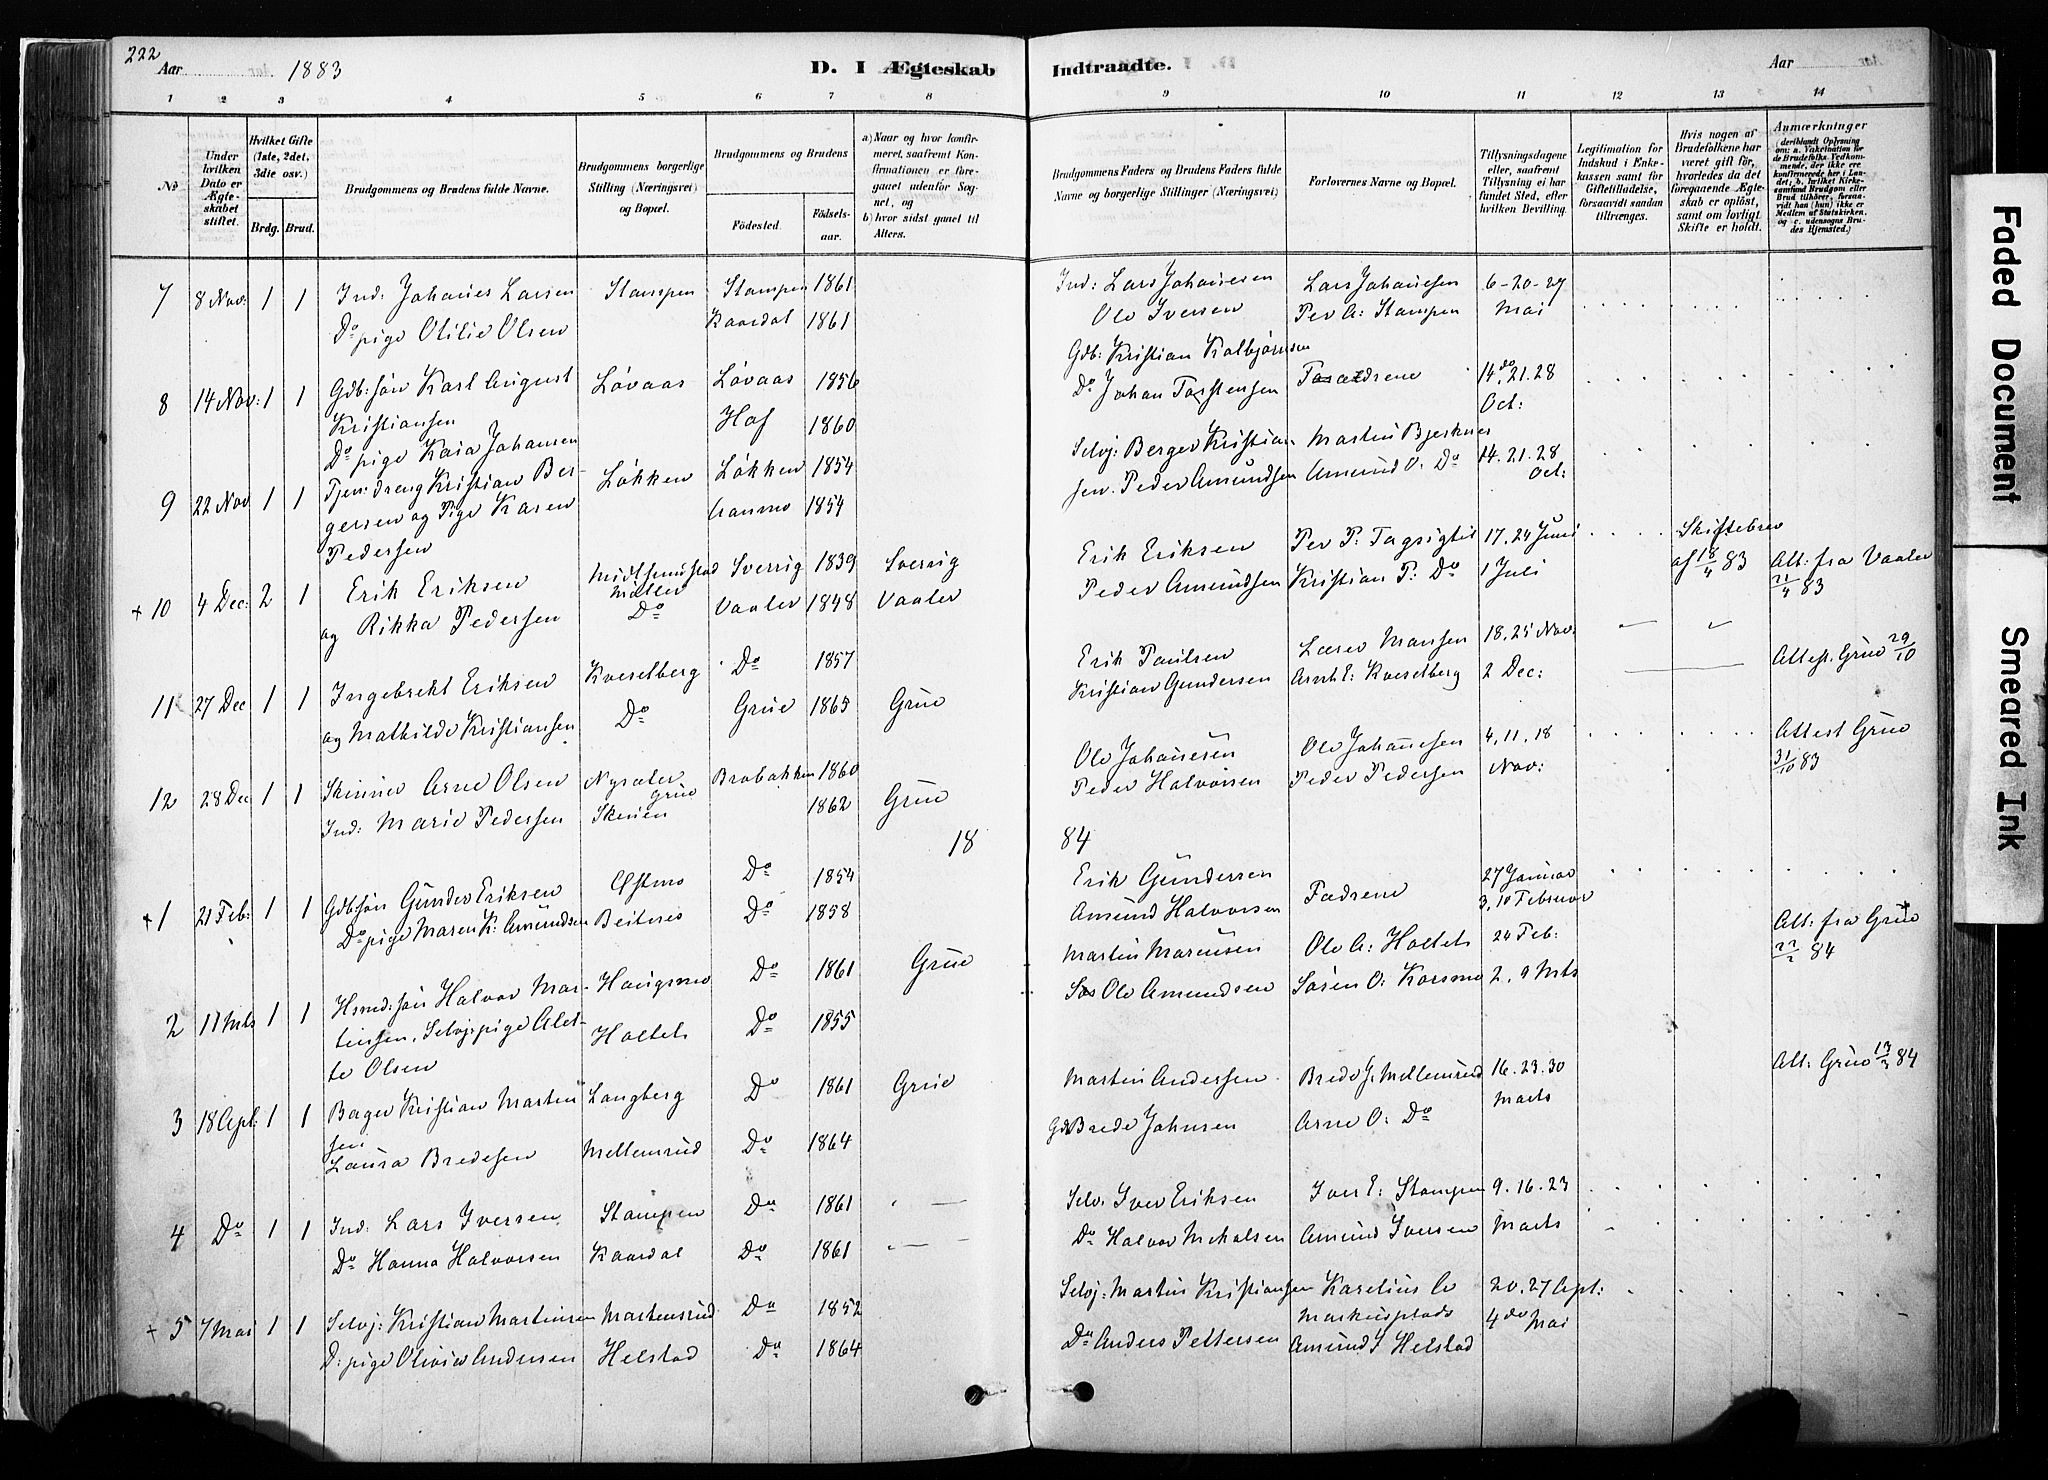 222
Aar 1883
D. I Ægteskab Indtraadte.
Aar
1 2 3 4 5 6 7 8 9 10 11 12 13 14
No
Under hvilken Dato er Ægteskabet stiftet.
Hvilket Gifte (1ste, 2det, 3die osv.)
Brdg. Brud.
Brudgommens og Brudens fulde Navne.
Brudgommens borgerlige Stilling (Næringsvei) og Bopæl.
Brudgommens og Brudens
Fødested.
Fødselsaar.
a) Naar og hvor konfirmeret, saafremt Konfirmationen er foregaaet udenfor Sognet, og
b) hvor sidst gaaet til Alters.
Brudgommens Faders og Brudens Faders fulde Navne og borgerlige Stillinger (Næringsvei)
Forlovernes Navne og Bopæl.
Tillysningsdagene eller, saafremt Tillysning ei har fundet Sted, efter hvilken Bevilling.
Legitimation for Indskud i Enkekassen samt for Giftetilladelse, forsaavidt saadan tiltrænges.
Hvis nogen af Brudefolkene har været gift før, hvorledes da det foregaaende Ægteskab er opløst, samt om lovligt Skifte er holdt.
Anmærkninger
7 8 Nov: 1 1 Ind: Johanes Larsen Stampen Stampen 1861 Ind: Lars Johanesen Lars Johanesen 6-20-27
Do pige Otilie Olsen Kaardal 1861 Ole Iversen Per A: Stampen Mai
8 14 Nov: 1 1 Gdb: søn Karl August Løvaas Løvaas 1856 Gdb: Kristian Kolbjørnsen 14de 21. 28
Kristiansen Hof 1860 Do Johan Torstensen Oct:
Do pige Kaia Johansen
9 22 Nov 1 1 Tjen: dreng Kristian Ber- Løkken Løkken 1854 Selvj: Berger Kristian Martin Bjerknes 14. 21. 28
gersen og Pige Karen 1854 sen. Peder Amundsen Amund O. Do Oct:
Pedersen
+ 10 4 Dec: 2 1 Erik Eriksen Sverrig 1839 Sverrig Erik Eriksen Per P: 17. 24 Juni Skiftebrev
og Rikka Pedersen Do Vaaler 1848 Vaaler Peder Amundsen Kristian P: Do 1 Juli af 18/4 83 Att: fra Vaaler 21/4 83
11 27 Dec 1 1 Ingebrekt Eriksen Kveselberg Do 1857 Erik Paulsen Hansen 18. 25 Nov:
og Mathilde Kristiansen Do Grue 1865 Grue Kristian Gundersen E: Kveselberg 2 Dec: Attest Grue 29/10
12 28 Dec 1 1 Arne Olsen Nysæter Brobakken 1860 Ole Johanesen Ole Johanesen 4. 11. 18 Attest Grue
Ind: Marie Pedersen Grue Skeuen 1862 Grue Peder Halvorsen Peder Pedersen Nov: 31/10 83
18 84
+ 1 21 Feb: 1 1 Gdbsøn Gunder Eriksen Do 1854 Erik Gundersen Fædrene 27 Januar
Do pige Maren K: Amundsen Do 1858 Amund Halvorsen 3, 10 Februar
2 17 Mts 1 1 Hsmd: søn Halvor Mar- Haugsmo Do 1861 Grue Martin Martinsen Ole A: Holtet 24 Feb: Att: fra Grue
tinsen, Selvj: pige Alet- Holtet Do 1855 Ole Amundsen Søren O: Korsmo 2. 9 Mts 22/2 84
te Olsen
3 18 Apl: 1 1 Berger Kristian Martin Langberg Do 1861 Grue Martin Andersen Brede J: Mellemrud 16. 23. 30 Att: Grue 13/3 84
sen
Laura Bredesen Mellemrud Do 1864 Gd Brede Johnsen Arne O: Do Marts
4 Do 1 1 Ind: Lars Iversen Stampen Do 1861 Selv: Iver Eriksen Iver E: Stampen 9. 16. 23
Do Hanna Halvorsen Kaardal Do 1861 Do Halvor Mikalsen Amund Iversen Marts
+ 5 7 Mai 1 1 Selvj: Kristian Martinsen Martensrud Do 1852 Selvj: Martin Kristiansen Karelius O 20. 27 Apl:
D: pige Olivie Andersen Helstad Do 1864 Do Anders Pettersen Markusplads 4de Mai
Amund J Helstad
Faded Document
Smeared Ink